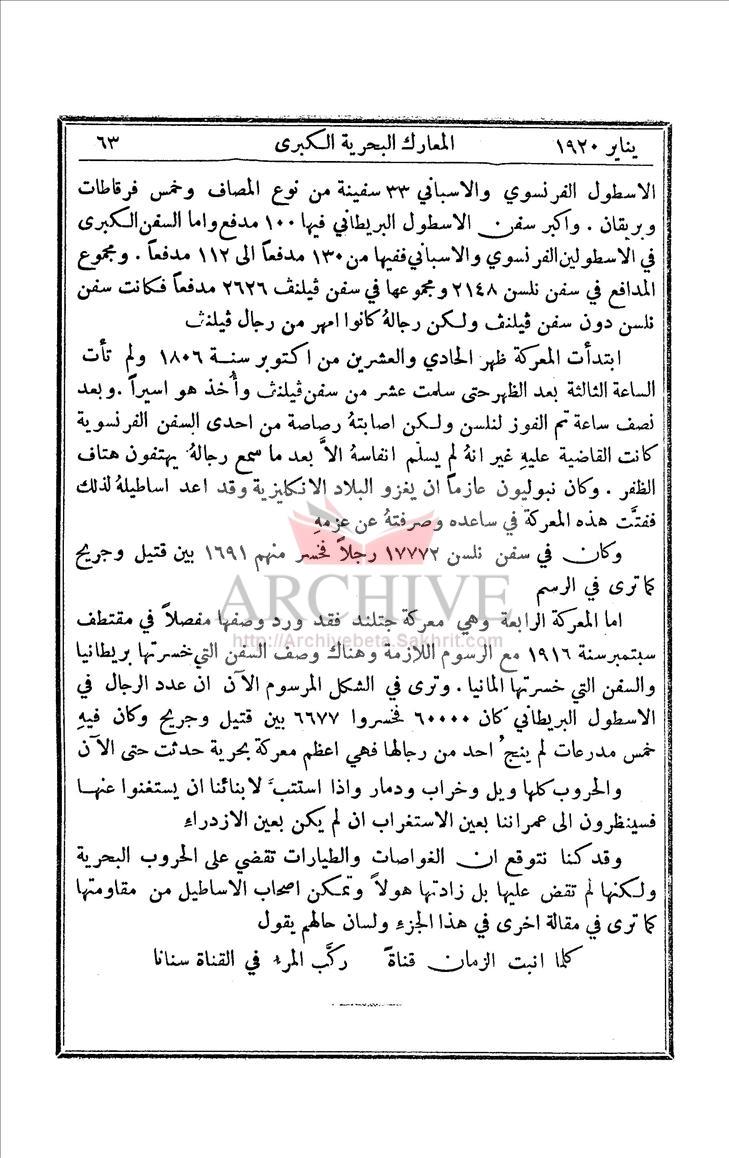 يناير ١٩٢٠ المعارك البحرية الكبرى ٦٣
الاسطول الفرنسوي والاسباني ٣٣ سفينة من نوع المصاف وخمس فرقاطات
وبريقان . واكبر سفن الاسطول البريطاني فيها ١٠٠ مدفع واما السفن الكبرى
في الاسطولين الفرنسوي والاسباني ففيها من ١٣٠ مدفعاً الى ١١٢ مدفعاً . ومجموع
المدافع في سفن نلسن ٢١٤٨ ومجموعها في سفن ڤيلنڤ ٢٦٢٦ مدفعاً فكانت سفن
نلسن دون سفن ڤيلنڤ ولكن رجالهُ كانوا امهر من رجال ڤيلنڤ
ابتدأت المعركة ظهر الحادي والعشرين من اكتوبر سنة ١٨٠٦ ولم تأت
الساعة الثالثة بعد الظهر حتى سلمت عشر من سفن ڤيلنڤ وأُخذ هو اسيراً . وبعد
نصف ساعة تم الفوز لنلسن ولكن اصابتهُ رصاصة من احدى السفن الفرنسوية
كانت القاضية عليهِ غير انهُ لم يسلّم انفاسهُ الاَّ بعد ما سمع رجالهُ يهتفون هتاف
الظفر . وكان نبوليون عازماً ان يغزو البلاد الانكليزية وقد اعد اساطيلهُ لذلك
ففتَّت هذه المعركة في ساعده وصرفتهُ عن عزمهِ
وكان في سفن نلسن ١٧٧٧٢ رجلاً فخسر منهم ١٦٩١ بين قتيل وجريح
كما ترى في الرسم
ARCHIVE
اما المعركة الرابعة وهي معركة جتلند فقد ورد وصفها مفصلاً في مقتطف
http://Archivebeta.Sakhrit.com
سبتمبر سنة ١٩١٦ مع الرسوم اللازمة وهناك وصف السفن التي خسرتها بريطانيا
والسفن التي خسرتها المانيا . وترى في الشكل المرسوم الآن ان عدد الرجال في
الاسطول البريطاني كان ٦٠٠٠٠ فخسروا ٦٦٧٧ بين قتيل وجريح وكان فيهِ
خمس مدرعات لم ينجُ احد من رجالها فهي اعظم معركة بحرية حدثت حتى الآن
والحروب كلها ويل وخراب ودمار واذا استتبَّ لابنائنا ان يستغنوا عنها
فسينظرون الى عمراننا بعين الاستغراب ان لم يكن بعين الازدراء
وقد كنا نتوقع ان الغواصات والطيارات تقضي على الحروب البحرية
ولكنها لم تقض عليها بل زادتها هولاً وتمكن اصحاب الاساطيل من مقاومتها
كما ترى في مقالة اخرى في هذا الجزءِ ولسان حالهم يقول
كلما انبت الزمان قناةً ركَّب المرء في القناة سنانا